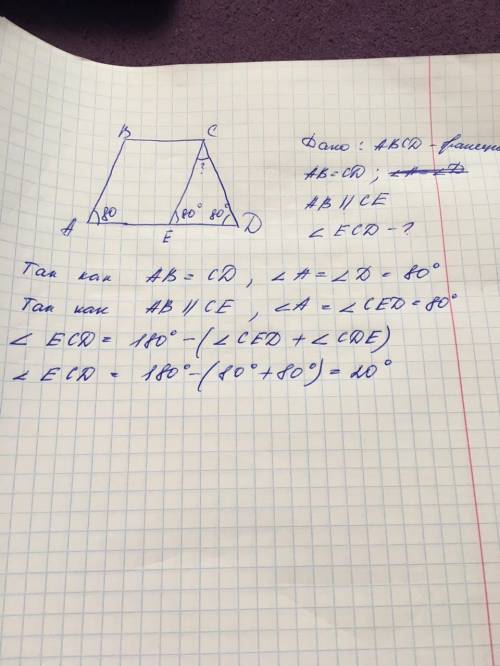 B C
?
A 80 80° 80° D
E
Дано: ABCD - трапеция
AB = CD ; ∠A = ∠D
AB || CE
∠ ECD - ?
Так как AB = CD, ∠A = ∠D = 80°
Так как AB || CE, ∠A = ∠CED = 80°
∠ ECD = 180° - (∠CED + ∠CDE)
∠ ECD = 180° - (80° + 80°) = 20°